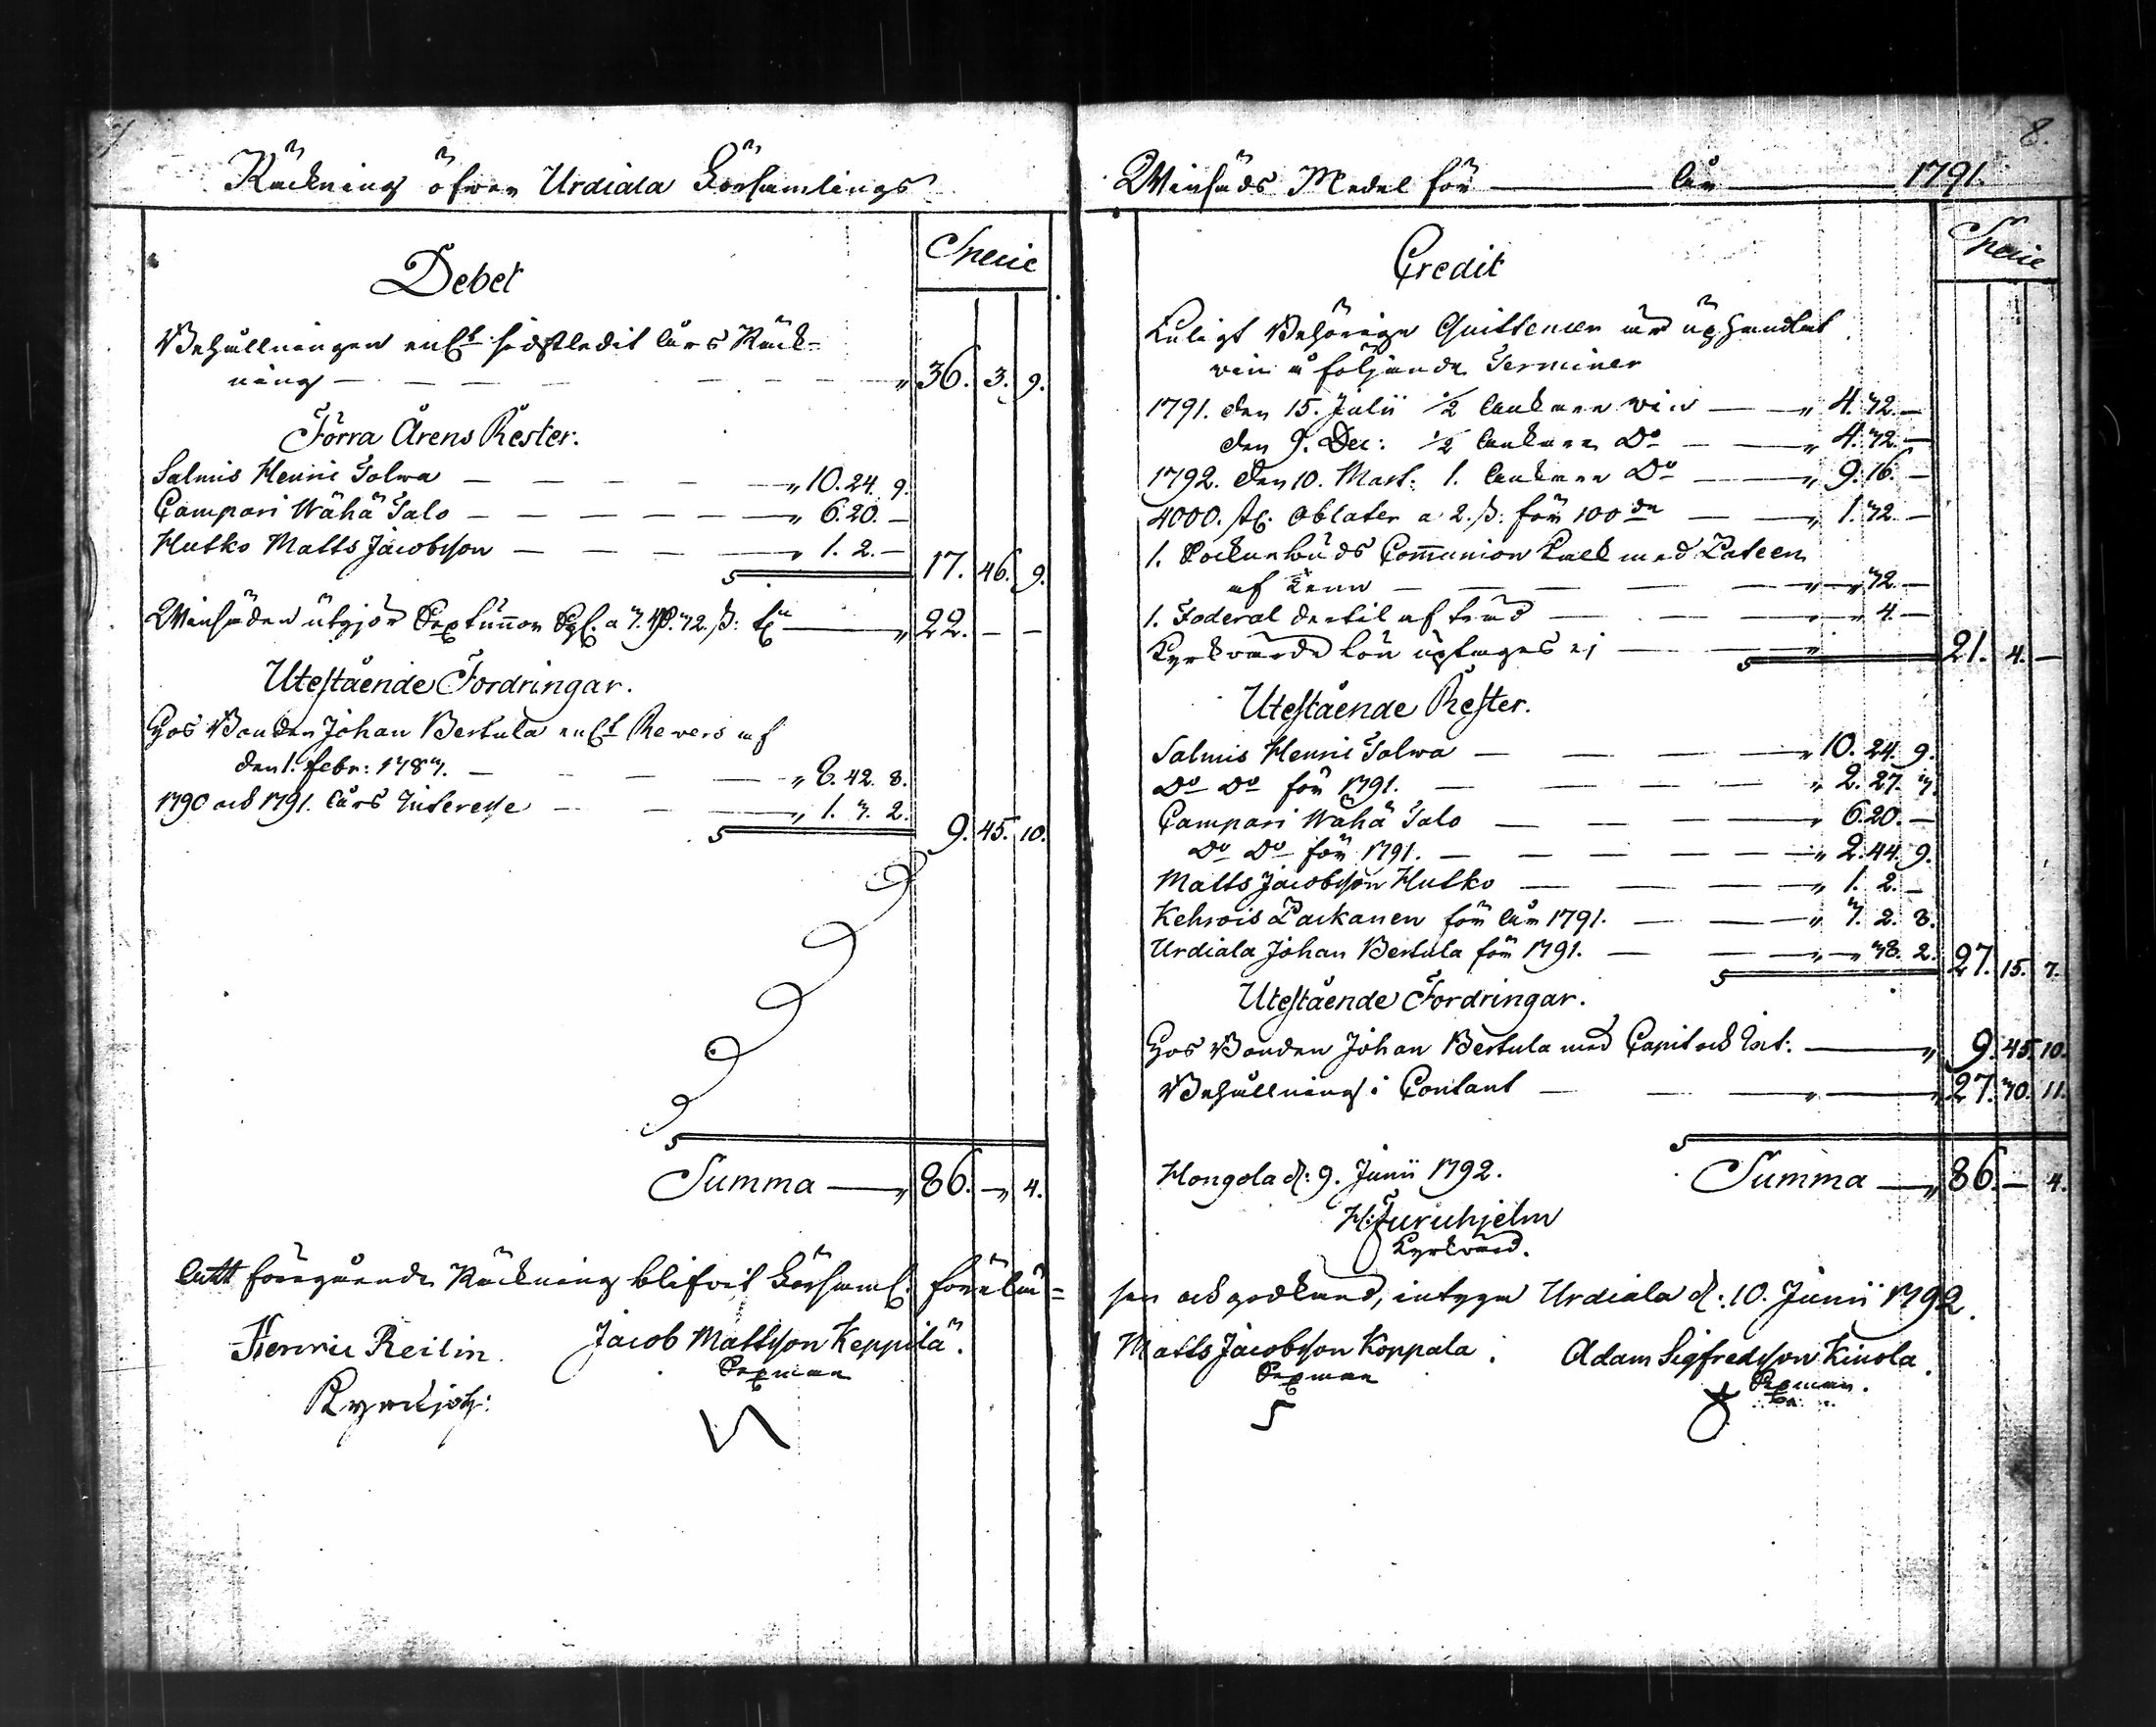 7
Räckning öfwer Urdiala Församlings
Debet
Specie
Behållningen enl:t sidstledit Års Räck=
ning — — — " 36. 3. 9.
Förra Årens Rester.
Salmis Henric Tolwa — — — " 10. 24. 9.
Campari Wähä Talo — — — " 6. 20. —
Hutko Matts Jacobsson — — — " 1. 2. — 17. 46. 9.
Winsäden utgjör Sex tunnor Spl. a 7. 
22. — —
Utestående Fordringar.
Hos Bonden Johan Bertula enl:t Revers af
den 1. Febr: 1787. — — — " 8. 42. 8.
1790 och 1791. Års Interesse — — — " 1. 3. 2. 9. 45. 10.
Summa — " 86. — " 4.
Att föregående Räckning blifvit Församl. förelä=
Henric Reilin. Jacob Mattsson Keppilä.
Sexman
8.
Winsäds Medel för — År — 1791.
Credit
Specie
Enligt Behörige Quittencer är uphandlat
vin å följande Terminer
1791. den 15. Julii 1/2 Ankare vin — " 4. 32. —
den 9. Dec: 1/2 Ankare Do — " 4. 32. —
1792. den 10. Mart. 1. Ankare Do — " 9. 16. —
4000. st. Oblater a 2. ß: för 100de — " 1. 32. —
1. Sockenbuds Communion Kalk med Pateen
af Tenn — — — " — " 32. —
1. Foderal dertil af träd — — " — " 4. —
Kyrkvärds lön uptages ej — — " 21. 4. —
Utestående Rester.
Salmis Henric Tolwa — — — " 10. 24. 9.
Do Do för 1791. — — — " 2. 27. 3.
Campari Wähä Talo — — — " 6. 20. —
Do Do för 1791. — — — " 2. 44. 9.
Matts Jacobsson Hutko — — — " 1. 2. —
Kehrois Packanen för År 1791. — — " 3. 2. 8.
Urdiala Johan Bertula för 1791. — — " — " 38. 2. 27. 15. 7.
Utestående Fordringar.
Hos Bonden Johan Bertula med Capit och Int: — " 9. 45. 10.
Behållning i Contant — — " — " 27. 30. 11.
Hongola d: 9. Junii 1792. Summa — " 86. — 4.
H: Furuhjelm
Kyrkvärd.
sen och godkänd, intyga Urdiala d: 10. Junii 1792.
Matts Jacobsson Koppala. Adam Sigfredsson Kinola.
Sexman Sexman.